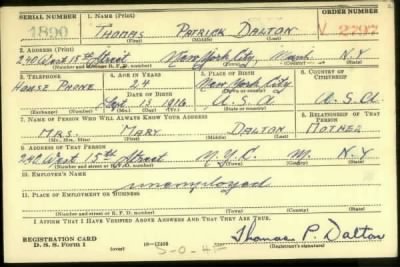 SERIAL NUMBER 1. NAME (Print) ORDER NUMBER
1890 THOMAS PATRICK DALTON V
(First) (Middle) (Last)
2. ADDRESS (Print)
240 West 15th Street New York City, Manh. N.Y
(Number and street or R. F. D. number) (Town) (County) (State)
3. TELEPHONE 4. AGE IN YEARS 5. PLACE OF BIRTH 6. COUNTRY OF CITIZENSHIP
House Phone 24 New York City
DATE OF BIRTH (Town or county)
Sept. 13 1916 U.S.A U.S.A
(Exchange) (Number) (Mo.) (Day) (Yr.) (State or country)
7. NAME OF PERSON WHO WILL ALWAYS KNOW YOUR ADDRESS 8. RELATIONSHIP OF THAT PERSON
MRS. MARY DALTON MOTHER
(Mr., Mrs., Miss) (First) (Middle) (Last)
9. ADDRESS OF THAT PERSON
240 West 15th Street N.Y.C. M. N.Y
(Number and street or R. F. D. number) (Town) (County) (State)
10. EMPLOYER'S NAME
unemployed
11. PLACE OF EMPLOYMENT OR BUSINESS
(Number and street or R. F. D. number) (Town) (County) (State)
I AFFIRM THAT I HAVE VERIFIED ABOVE ANSWERS AND THAT THEY ARE TRUE.
REGISTRATION CARD Thomas P. Dalton
D. S. S. Form 1 (over) (Registrant's signature)